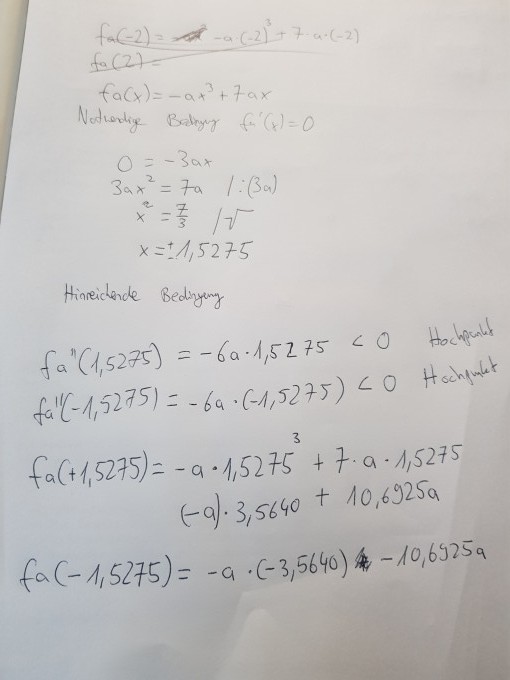 fa(-2) = -a·(-2)³ + 7·a·(-2)
fa(2) =
fa(x) = -ax³ + 7ax
Notwendige Bedingung fa'(x) = 0
0 = -3ax
3ax² = 7a /:(3a)
x² = 7/3 /√
x = ± 1,5275
Hinreichende Bedingung
fa''(1,5275) = -6a·1,5275 < 0 Hochpunkt
fa''(-1,5275) = -6a·(-1,5275) < 0 Hochpunkt
fa(+1,5275) = -a·1,5275³ + 7·a·1,5275
(-a)·3,5640 + 10,6925a
fa(-1,5275) = -a·(-3,5640) - 10,6925a